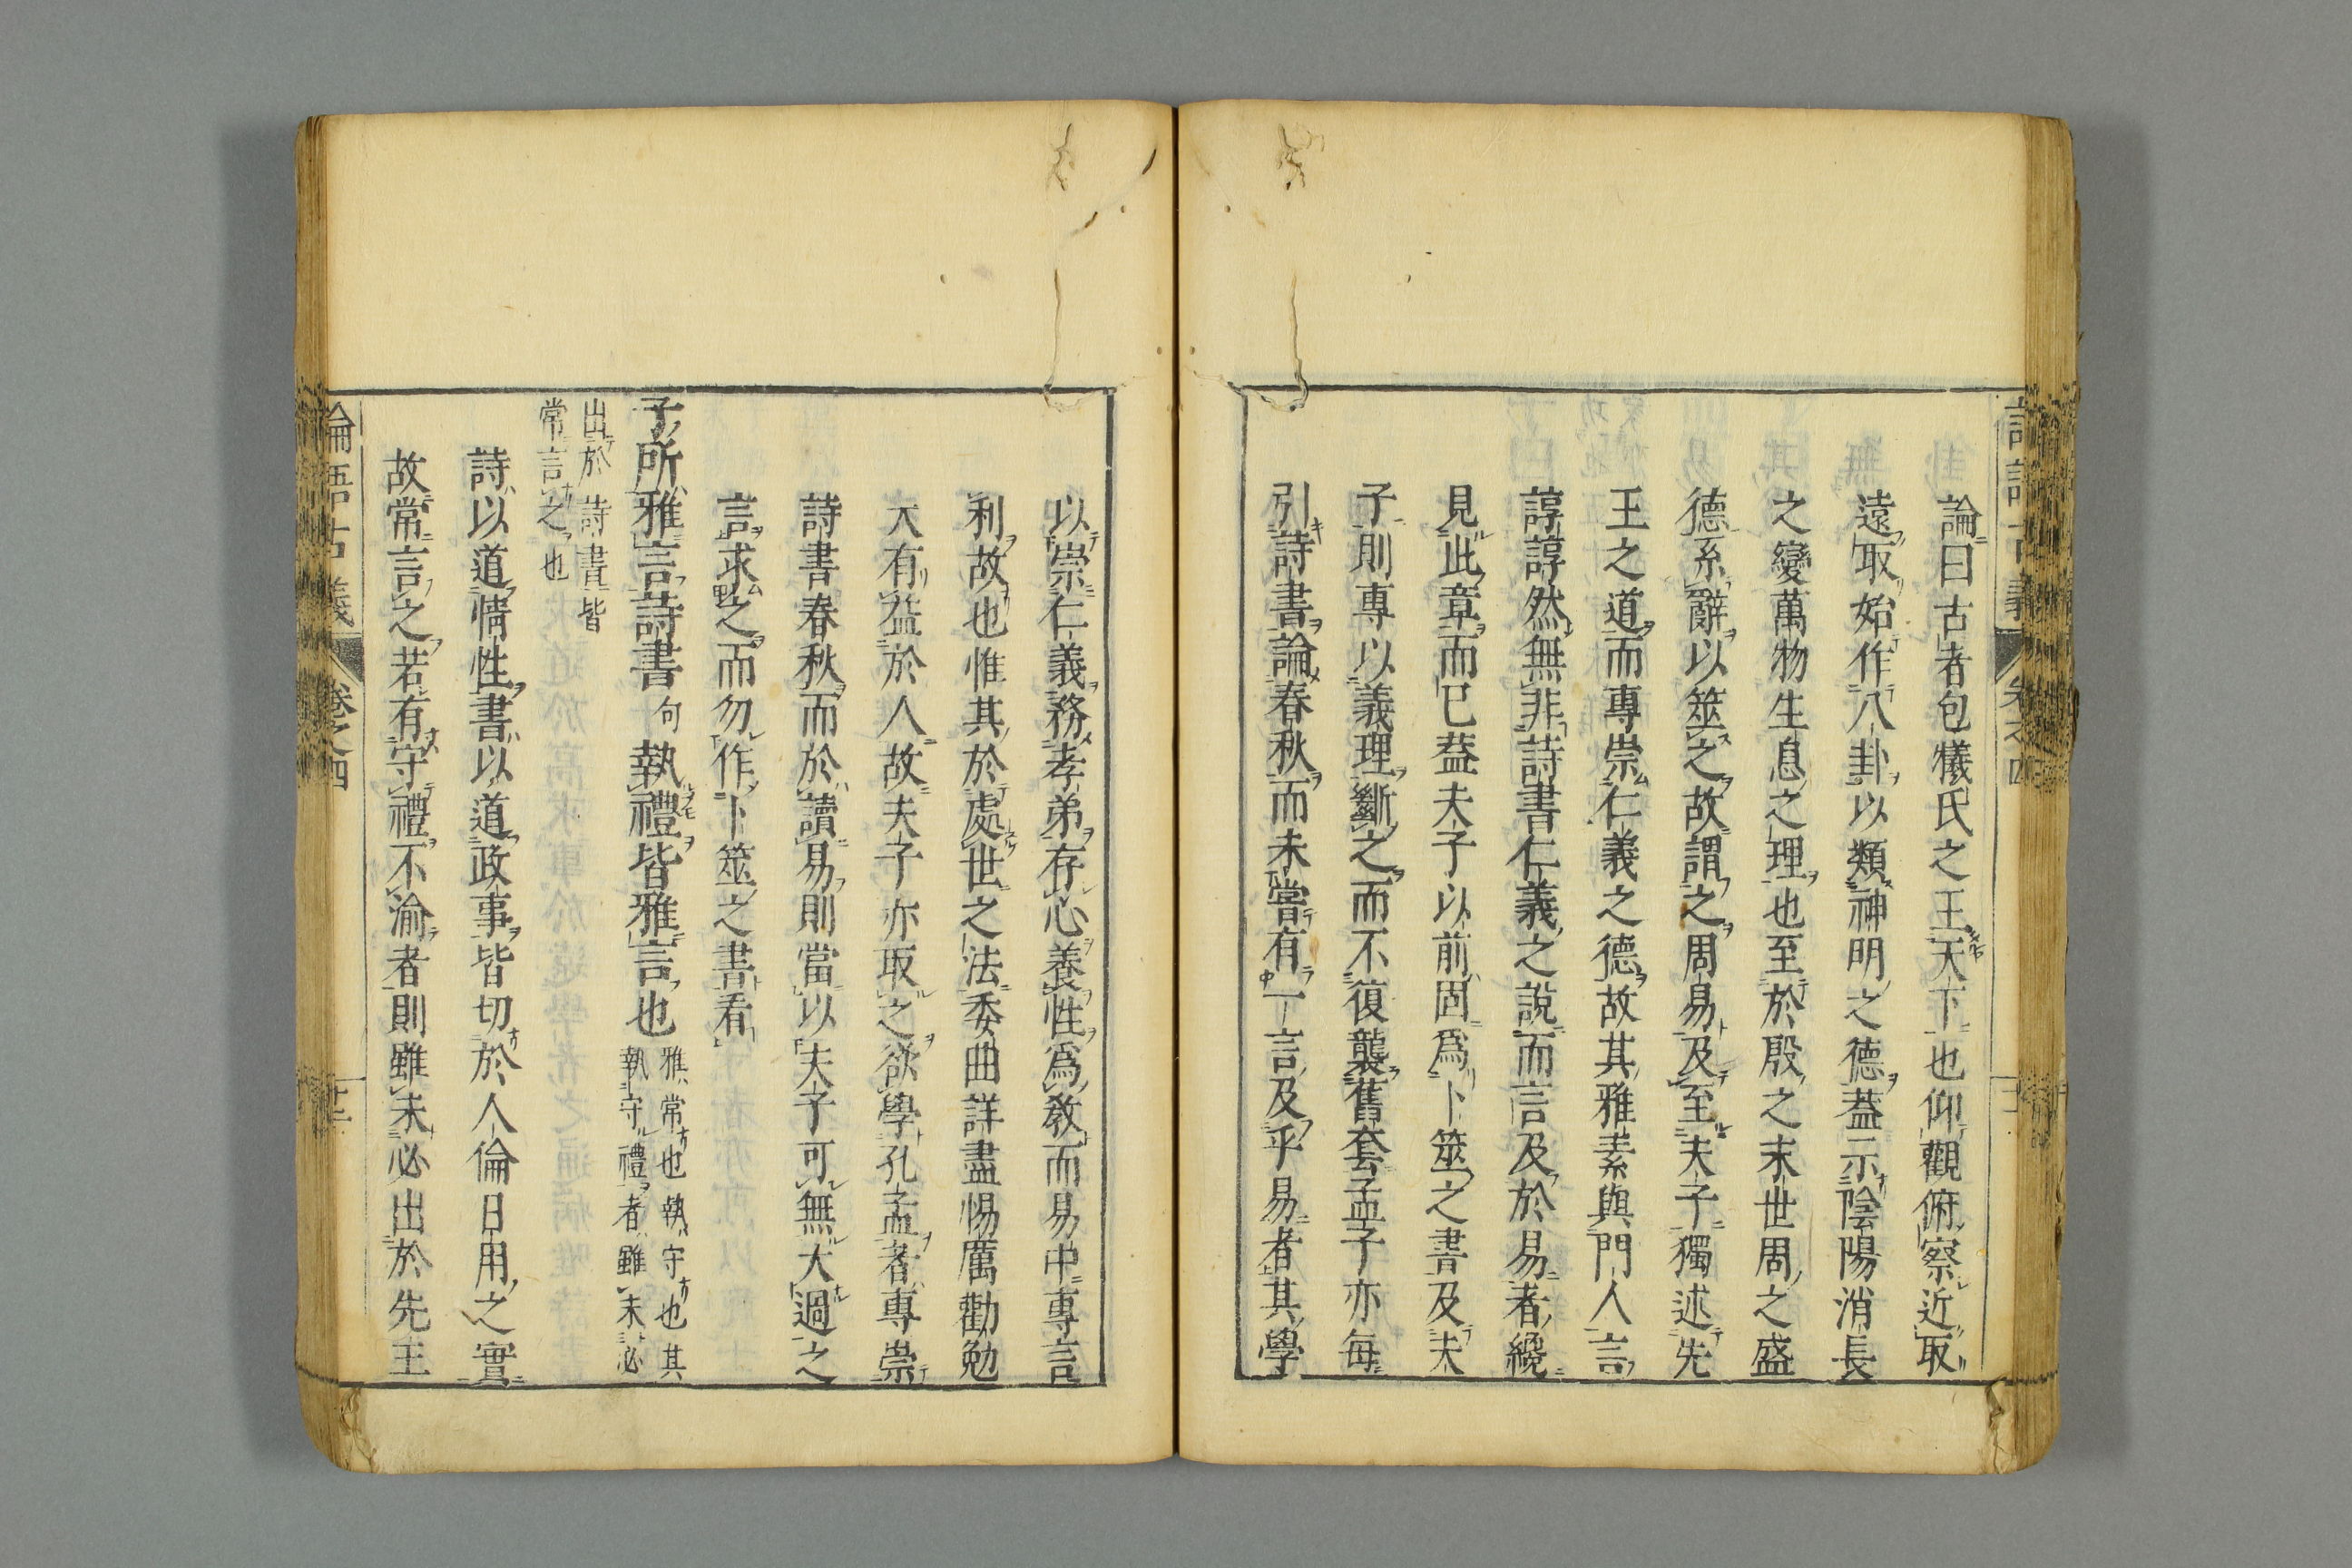 論曰古者包犧氏之王天下也仰觀俯察近取
遠取始作八卦以類神明之德葢示陰陽消長
之變萬物生息之理也至於殷之末世周之盛
德系辭以筮之故謂之周易及至夫子獨述先
王之道而專崇仁義之德故其雅素與門人言
諄諄然無非詩書仁義之說而言及於易者纔
見此章而已葢夫子以前固爲卜筮之書及夫
子則專以義理斷之而不復襲舊套孟子亦每
引詩書論春秋而未嘗有一言及乎易者其學
以崇仁義務孝弟存心養性爲教而易中專言
利故也惟其於處世之法委曲詳盡惕厲勸勉
大有益於人故夫子亦取之欲學孔孟者專崇
詩書春秋而於讀易則當以夫子可無大過之
言求之而勿作卜筮之書看
子所雅言詩書句執禮皆雅言也
雅常也執守也其
執守禮者雖未必
出於詩書皆
常言之也
詩以道情性書以道政事皆切於人倫日用之實
故常言之若有守禮不渝者則雖未必出於先王
論語古義 卷之四